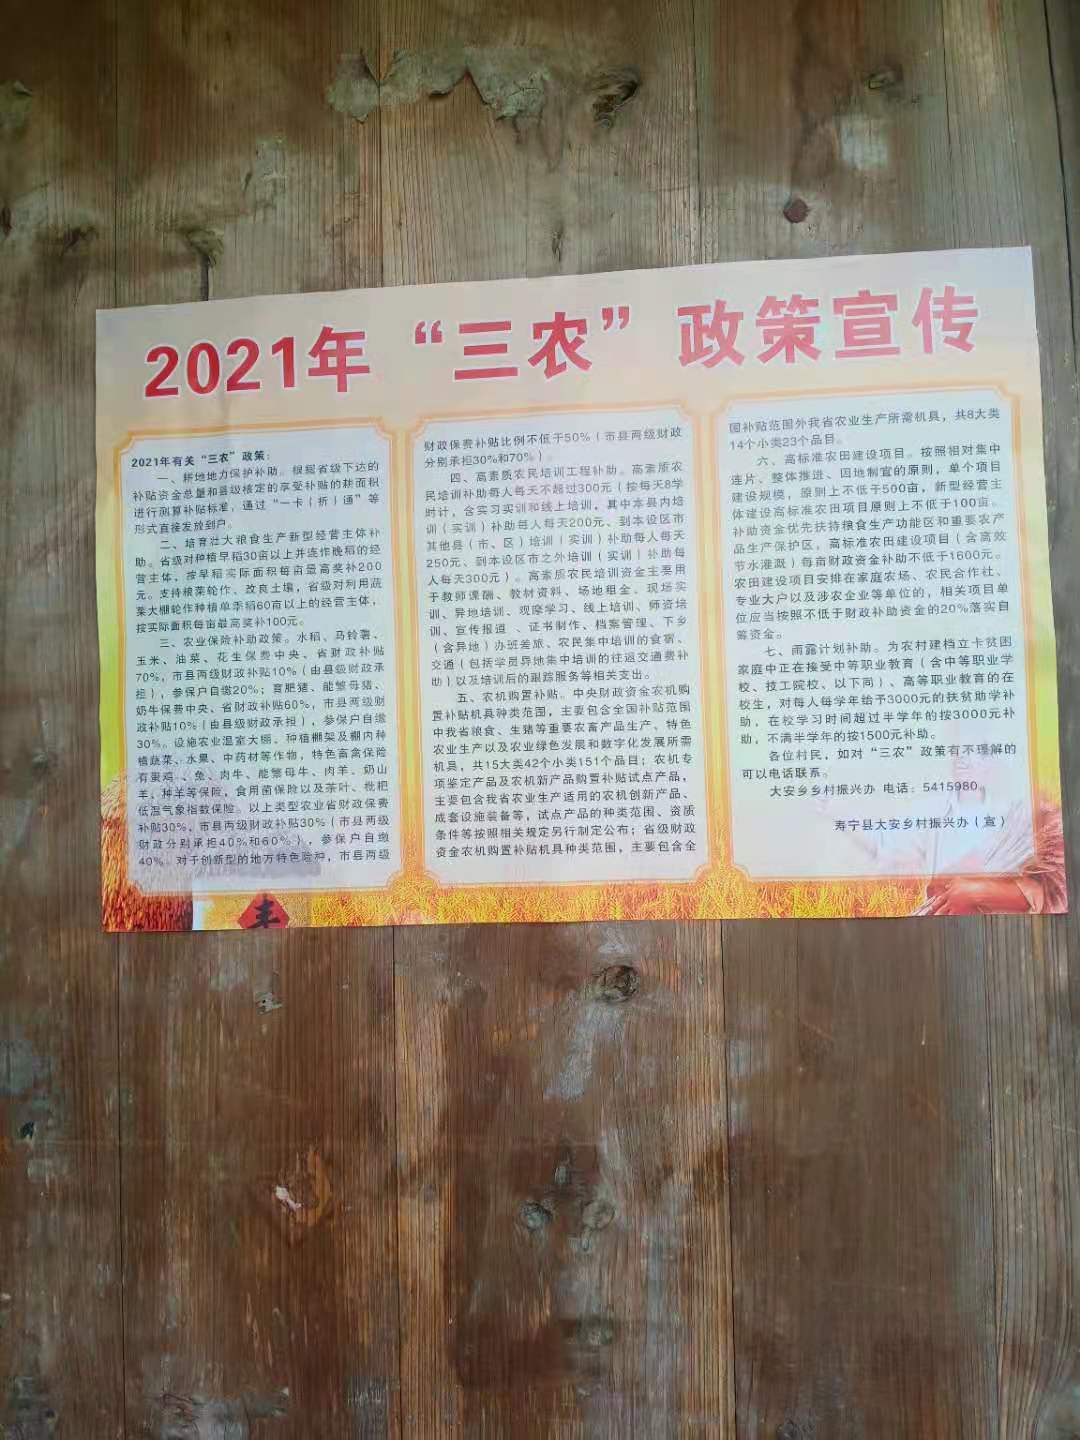 2021年“三农”政策宣传
2021年有关“三农”政策：
一、耕地地力保护补助。根据省级下达的
补贴资金总量和县级核定的享受补贴的耕面积
进行测算补贴标准，通过“一卡（折）通”等
形式直接发放到户。
二、培育壮大粮食生产新型经营主体补
助。省级对种植早稻30亩以上并连作晚稻的经
营主体，按早稻实际面积每亩最高奖补200
元。支持稂菜轮作、改良土壤，省级对利用蔬
菜大棚轮作种植单季稻60亩以上的经营主体，
按实际面积每亩最高奖补100元。
三、农业保险补助政策。水稻、马铃薯、
玉米、油菜、花生保费中央、省财政补贴
70%，市县两级财政补贴10%（由县级财政承
担），参保户自缴20%；育肥猪、能繁母猪、
奶牛保费中央、省财政补贴60%，市县两级财
政补贴10%（由县级财政承担），参保户自缴
30%。设施农业温室大棚、种植棚架及棚内种
植蔬菜、水果、中药材等作物，特色畜禽保险
有蛋鸡、兔、肉牛、能繁母牛、肉羊、奶山
羊、种羊等保险，食用菌保险以及茶叶、枇杷
低温气象指数保险。以上类型农业省财政保费
补贴30%，市县两级财政补贴30%（市县两级
财政分别承担40%和60%），参保户自缴
40%。对于创新型的地方特色险种，市县两级
财政保费补贴比例不低于50%（市县两级财政
分别承担30%和70%）。
四、高素质农民培训工程补助。高素质农
民培训补助每人每天不超过300元（按每天8学
时计，含实习实训和线上培训，其中本县内培
训（实训）补助每人每天200元、到本设区市
其他县（市、区）培训（实训）补助每人每天
250元、到本设区市之外培训（实训）补助每
人每天300元）。高素质农民培训资金主要用
于教师课酬、教材资料、场地租金、现场实
训、异地培训、观摩学习、线上培训、师资培
训、宣传报道 、证书制作、档案管理、下乡
（含异地）办班差旅、农民集中培训的食宿、
交通（包括学员异地集中培训的往返交通费补
助）以及培训后的跟踪服务等相关支出。
五、农机购置补贴。中央财政资金农机购
置补贴机具种类范围，主要包含全国补贴范围
中我省粮食、生猪等重要农畜产品生产、特色
农业生产以及农业绿色发展和数字化发展所需
机具，共15大类42个小类151个品目；农机专
项鉴定产品及农机新产品购置补贴试点产品，
主要包含我省农业生产适用的农机创新产品、
成套设施装备等，试点产品的种类范围、资质
条件等按照相关规定另行制定公布；省级财政
资金农机购置补贴机具种类范围，主要包含全
国补贴范围外我省农业生产所需机具，共8大类
14个小类23个品目。
六、高标准农田建设项目。按照相对集中
连片、整体推进、因地制宜的原则，单个项目
建设规模，原则上不低于500亩，新型经营主
体建设高标准农田项目原则上不低于100亩。
补助资金优先扶持粮食生产功能区和重要农产
品生产保护区，高标准农田建设项目（含高效
节水灌溉）每亩财政资金补助不低于1600元。
农田建设项目安排在家庭农场、农民合作社、
专业大户以及涉农企业等单位的，相关项目单
位应当按照不低于财政补助资金的20%落实自
筹资金。
七、雨露计划补助。为农村建档立卡贫困
家庭中正在接受中等职业教育（含中等职业学
校、技工院校、以下同）、高等职业教育的在
校生，对每人每学年给予3000元的扶贫助学补
助，在校学习时间超过半学年的按3000元补
助，不满半学年的按1500元补助。
各位村民，如对“三农”政策有不理解的
可以电话联系。
大安乡乡村振兴办 电话：5415980。
寿宁县大安乡村振兴办（宣）
丰